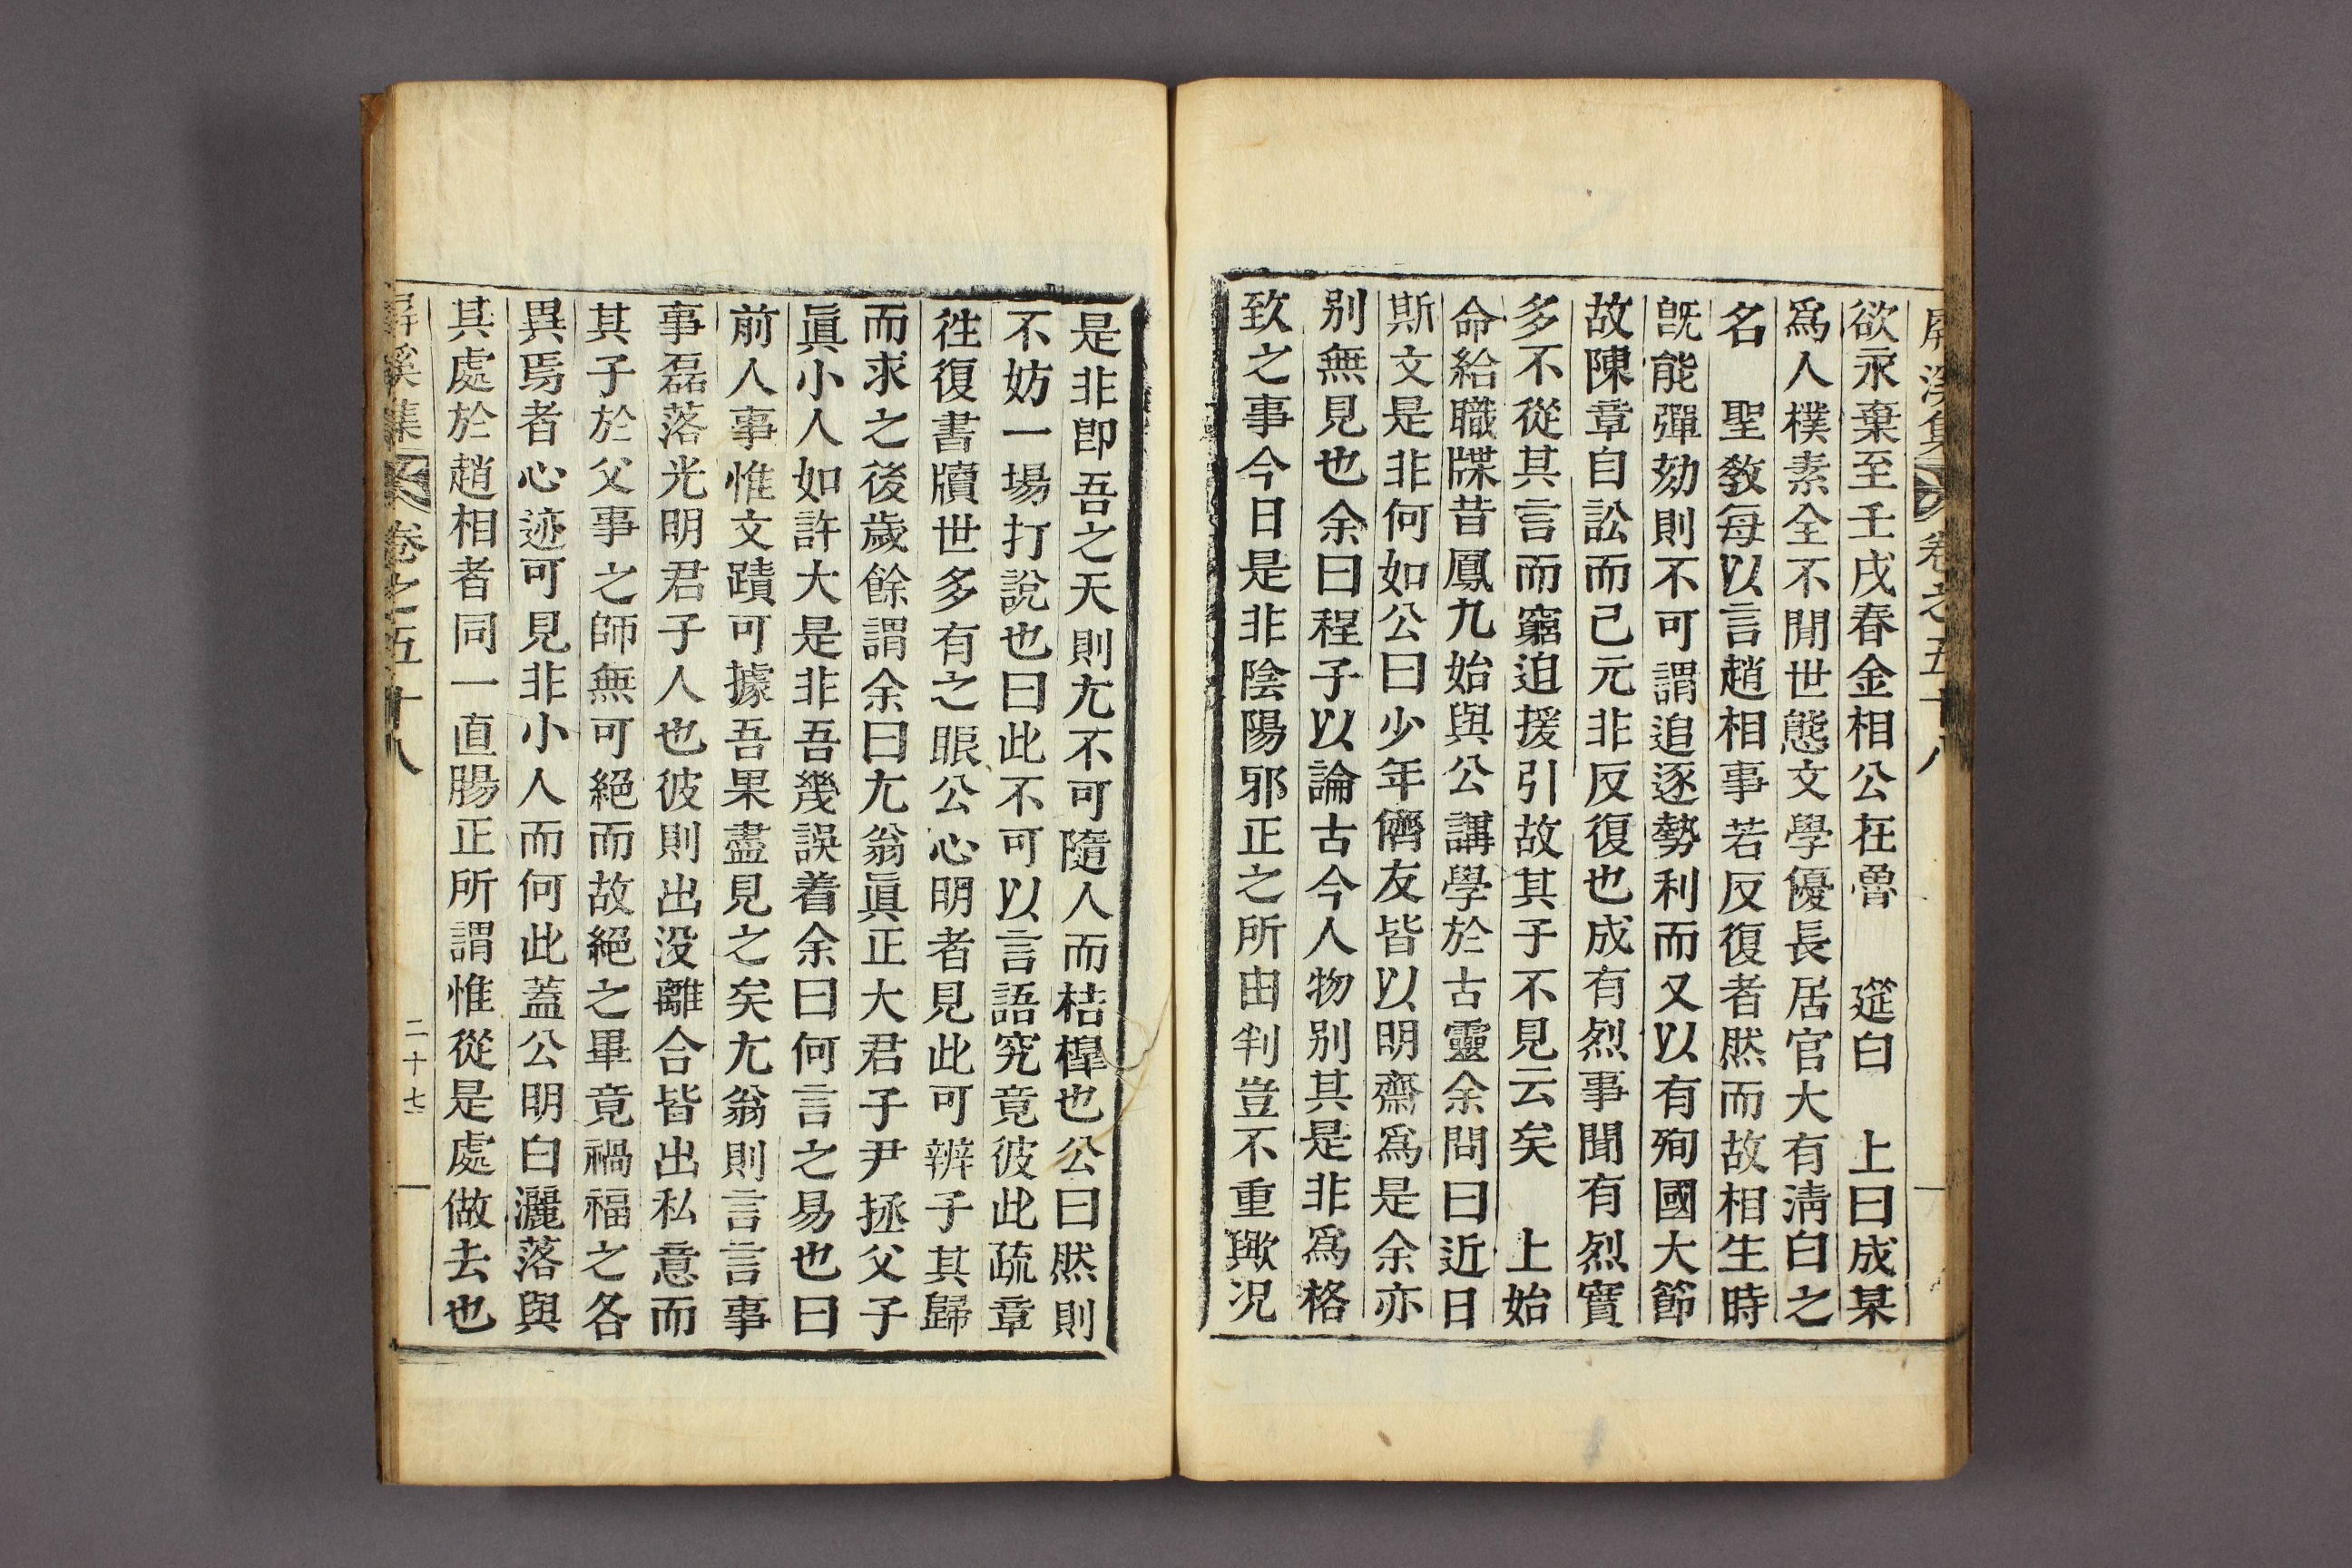 屛溪集 卷之五十八
欲永棄至壬戌春金相公在魯 筵白 上曰成某
爲人樸素全不閒世態文學優長居官大有淸白之
名 聖敎每以言趙相事若反復者然而故相生時
旣能彈劾則不可謂追逐勢利而又以有殉國大節
故陳章自訟而己元非反復也成有烈事聞有烈實
多不從其言而窮迫援引故其子不見云矣 上始
命給職牒昔鳳九始與公講學於古靈余問曰近日
斯文是非何如公曰少年儕友皆以明齋爲是余亦
别無見也余曰程子以論古今人物别其是非爲格
致之事今日是非陰陽邪正之所由判豈不重歟况
是非卽吾之天則尤不可隨人而桔橰也公曰然則
不妨一場打說也曰此不可以言語究竟彼此疏章
徃復書牘世多有之眼公心明者見此可辨子其歸
而求之後歲餘謂余曰尤翁眞正大君子尹拯父子
眞小人如許大是非吾幾誤着余曰何言之易也曰
前人事惟文蹟可據吾果盡見之矣尤翁則言言事
事磊落光明君子人也彼則出没離合皆出私意而
其子於父事之師無可絕而故絕之畢竟禍福之各
異焉者心迹可見非小人而何此蓋公明白灑落與
其處於趙相者同一直腸正所謂惟從是處做去也
屛溪集 卷之五十八 二十七